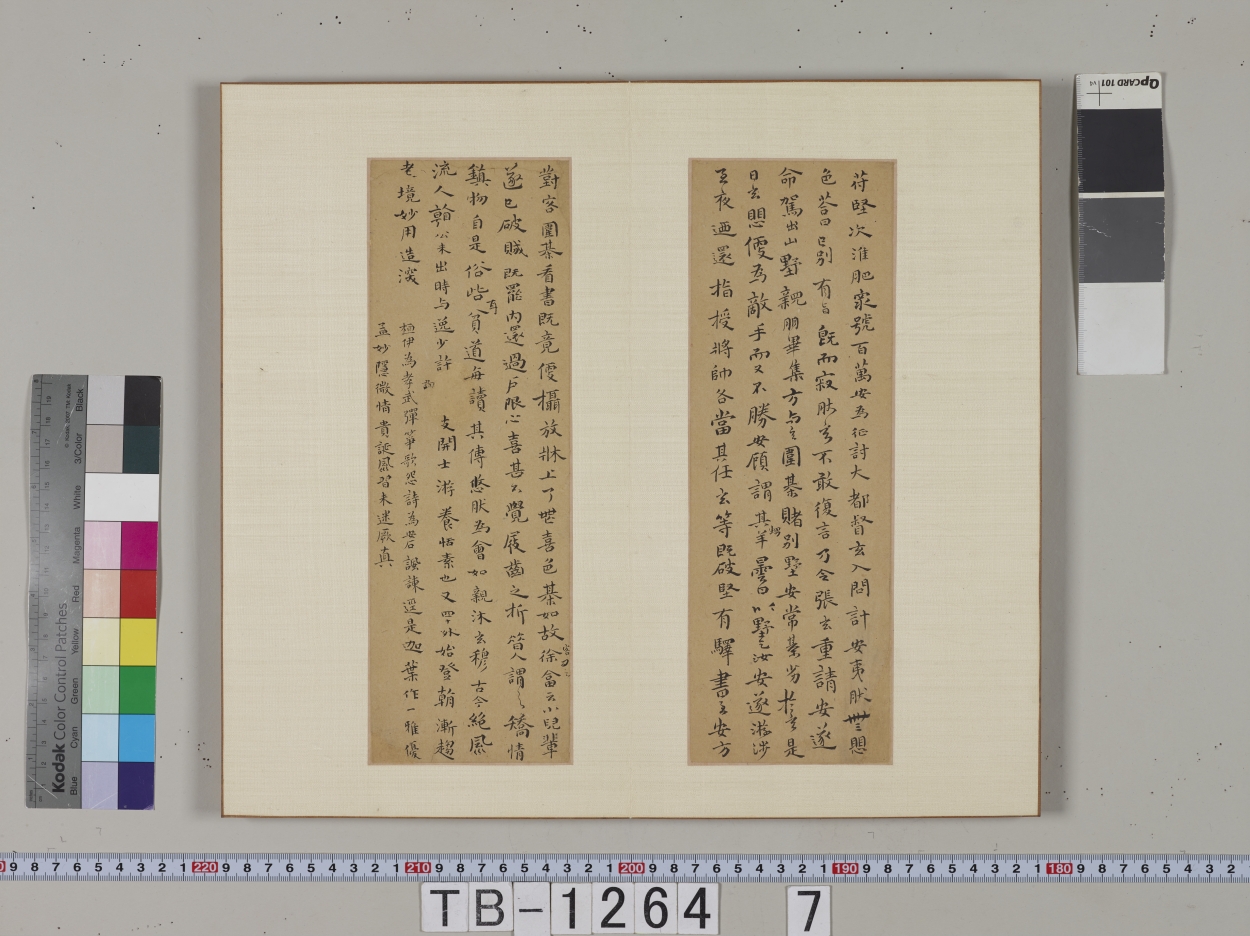 苻堅次淮肥衆號百萬安為征討大都督玄入問計安夷肰無懼
色荅曰已別有旨旣而寂肰玄不敢復言乃令張玄重請安遂
命駕出山墅親朋畢集方与之圍棊賭別墅安常棊劣於玄是
日玄懼便為敵手而又不勝安顧謂其甥羊曇曰以墅乞汝安遂游涉
至夜迺還指授將帥各當其任玄等既破堅有驛書至安方
對客圍棊看書既竟便攝放牀上了無喜色棊如故客問之徐荅云小兒輩
遂已破賊既罷內還過户限心喜甚不覺屐齒之折昔人謂之矯情
鎮物自是俗訾耳貧道每讀其傳憋肰為會如親沐玄穆古今絕風
流人物公未出時与逸少許詢支開士游養恬素也又四十外始登朝漸超
老境妙用造淡
桓伊為孝武彈箏歌怨詩為安石諷諫逕是迦葉作一雅優
孟妙隱微情貴誕風習未迷厥真
Kodak Color Control Patches
Blue Cyan Green Yellow Red Magenta White 3/Color Black
QPCARD 101 v4
220 210 200 190 180
TB-1264 7